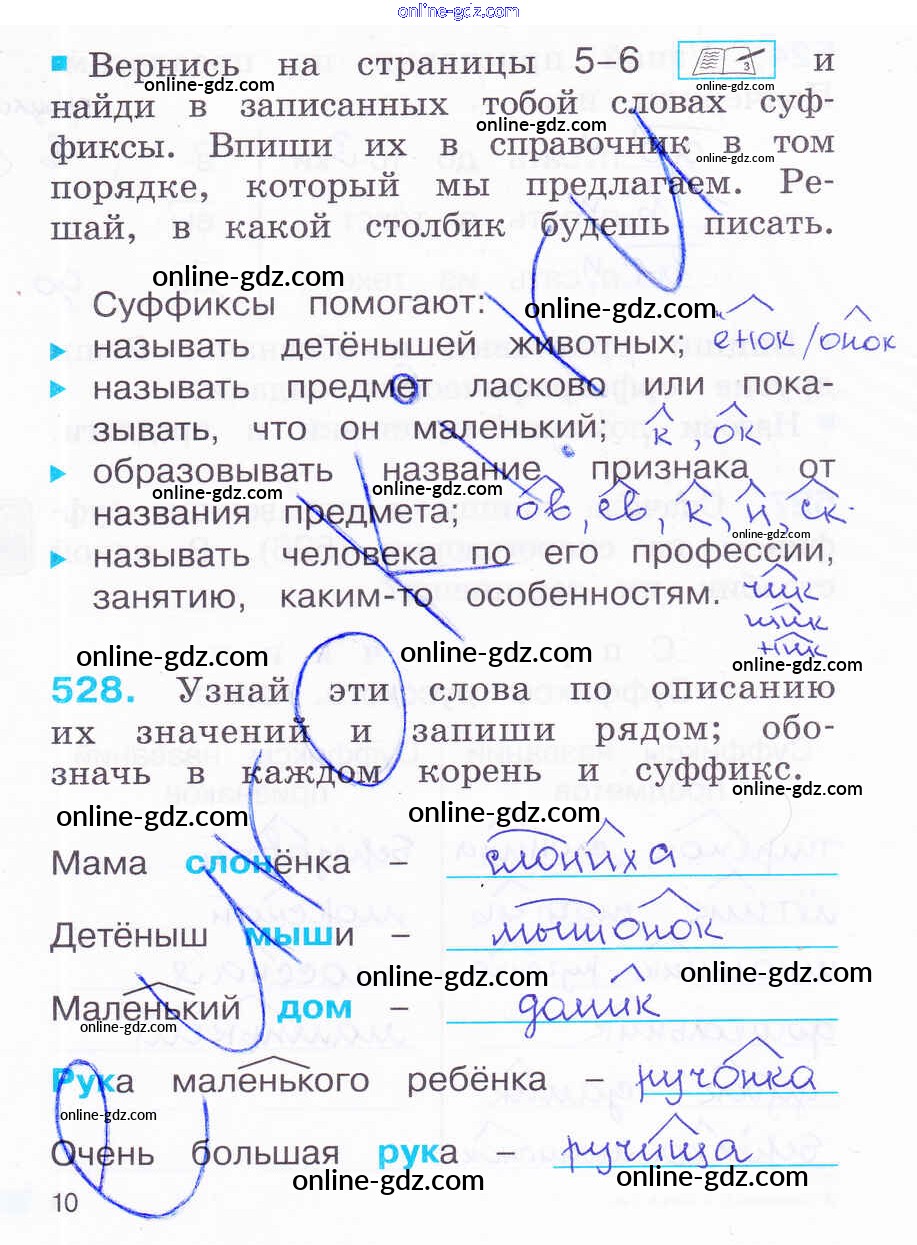 online-gdz.com
Вернись на страницы 5–6 и
online-gdz.com online-gdz.com
найди в записанных тобой словах суф-
online-gdz.com
фиксы. Впиши их в справочник в том
online-gdz.com
порядке, который мы предлагаем. Ре-
шай, в какой столбик будешь писать.
online-gdz.com
Суффиксы помогают: online-gdz.com
называть детёнышей животных; ёнок/онок
называть предмет ласково или пока-
зывать, что он маленький; к, ок
образовывать название признака от
online-gdz.com online-gdz.com
названия предмета; ов, ев, к, н, ск.
online-gdz.com
называть человека по его профессии,
занятию, каким-то особенностям. чик
щик
ник
online-gdz.com online-gdz.com online-gdz.com
528. Узнай эти слова по описанию
их значений и запиши рядом; обо-
значь в каждом корень и суффикс.
online-gdz.com
online-gdz.com online-gdz.com
Мама слонёнка – слониха
Детёныш мыши – мышонок
online-gdz.com online-gdz.com
Маленький дом – домик
online-gdz.com
Рука маленького ребёнка – ручонка
online-gdz.com
Очень большая рука – ручища
online-gdz.com online-gdz.com
10